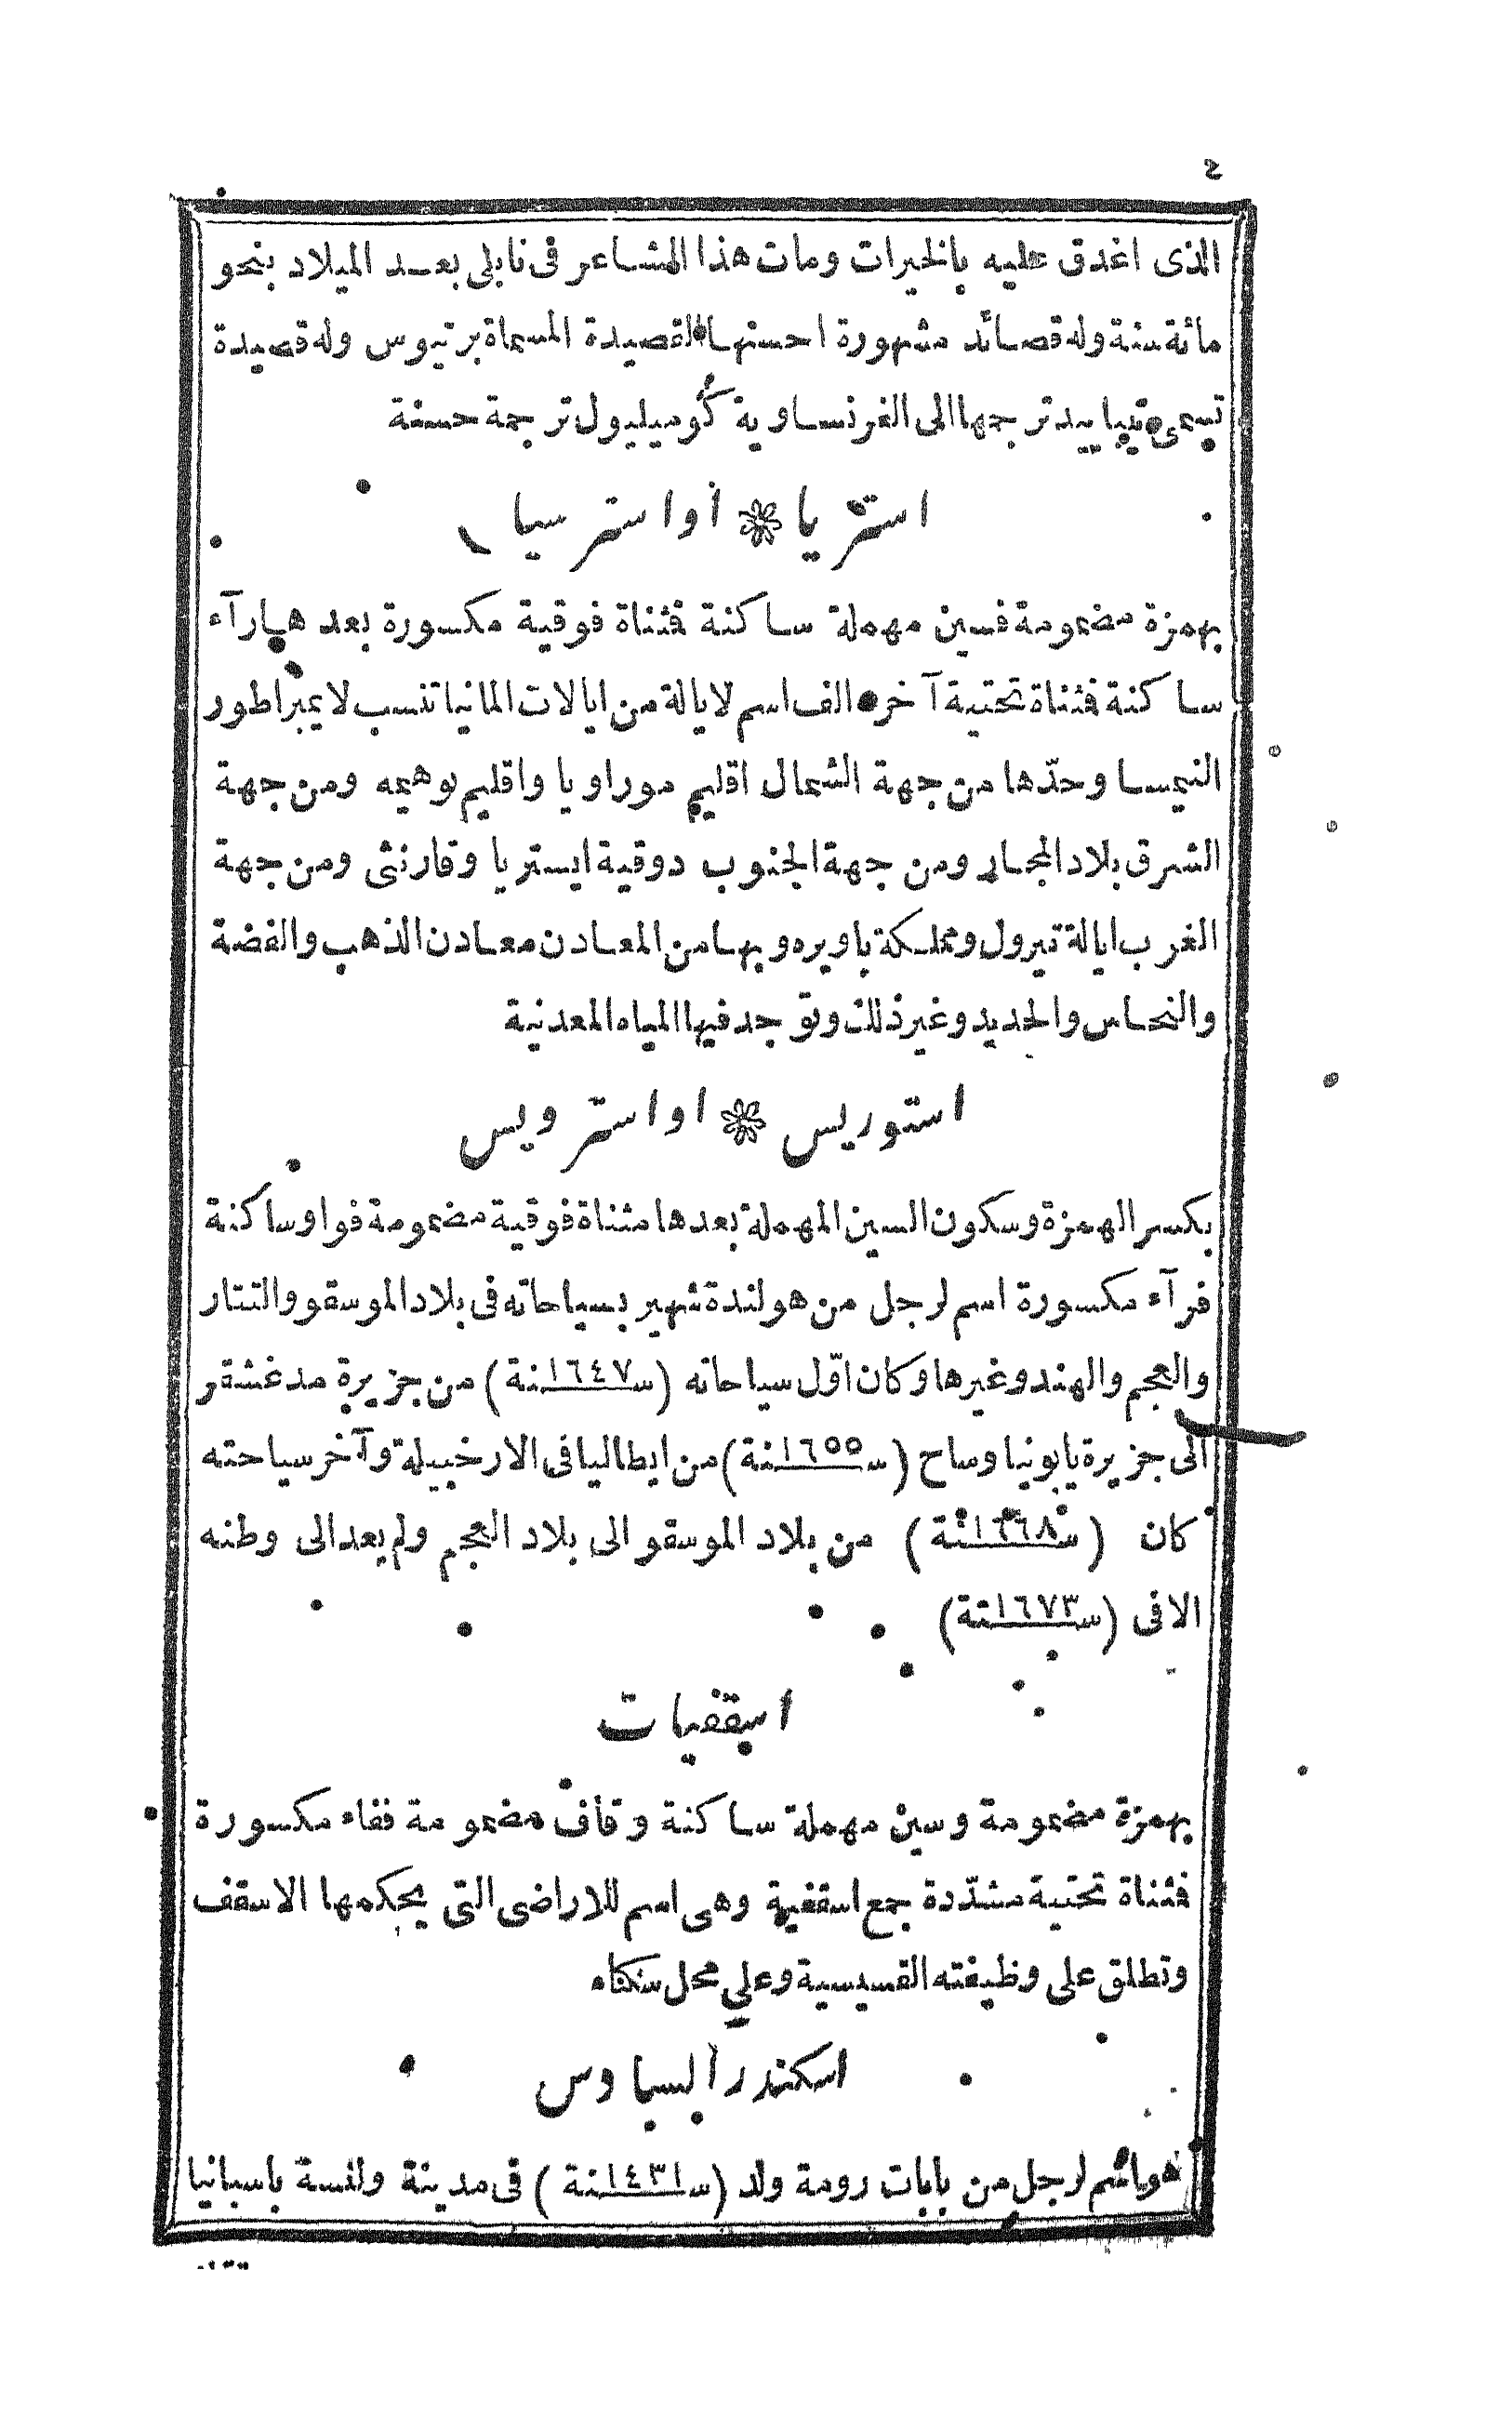 ٤
الذى اغدق عليه بالخيرات ومات هذا الشاعر فى نابلى بعد الميلاد بنحو
مائة سنة وله قصائد مشهورة احسنها القصيدة المسماة برتيوس وله قصيدة
تسمى تيباييد ترجمها الى الفرنساوية كوميليول ترجمة حسنة
استريا * أو استرسيا
بهمزة مضمومة فسين مهملة ساكنة فثناة فوقية مكسورة بعدها رآء
ساكنة فثناة تحتية آخره الف اسم لايالة من ايالات المانيا تنسب لايمبراطور
النيمسا وحدّها من جهة الشمال اقليم موراويا واقليم بوهيمه ومن جهة
الشرق بلاد المجار ومن جهة الجنوب دوقية ايستريا وقارنثى ومن جهة
الغرب ايالة تيرول ومملكة باويره وبها من المعادن معادن الذهب والفضة
والنحاس والحديد وغير ذلك وتوجد فيها المياه المعدنية
استوريس * او استرويس
بكسر الهمزة وسكون السين المهملة بعدها مثناة فوقية مضمومة فواو ساكنة
فرآء مكسورة اسم لرجل من هولندة شهير بسياحاته فى بلاد الموسقو والتتار
والعجم والهند وغيرها وكان اوّل سياحاته (سنة ١٦٤٧) من جزيرة مدغشقر
الى جزيرة يابونيا وساح (سنة ١٦٥٥) من ايطاليا فى الارخبيلة وآخر سياحته
كان (سنة ١٦٦٨) من بلاد الموسقو الى بلاد العجم ولم يعد الى وطنه
الا فى (سنة ١٦٧٣)
اسقفيات
بهمزة مضمومة وسين مهملة ساكنة وقاف مضمومة ففاء مكسورة
فثناة تحتية مشدّدة جمع اسقفية وهى اسم للاراضى التى يحكمها الاسقف
وتطلق على وظيفته القسيسية وعلى محل سكناه
اسكندر السادس
هو اسم لرجل من بابات رومة ولد (سنة ١٤٣١) فى مدينة ولنسة باسبانيا